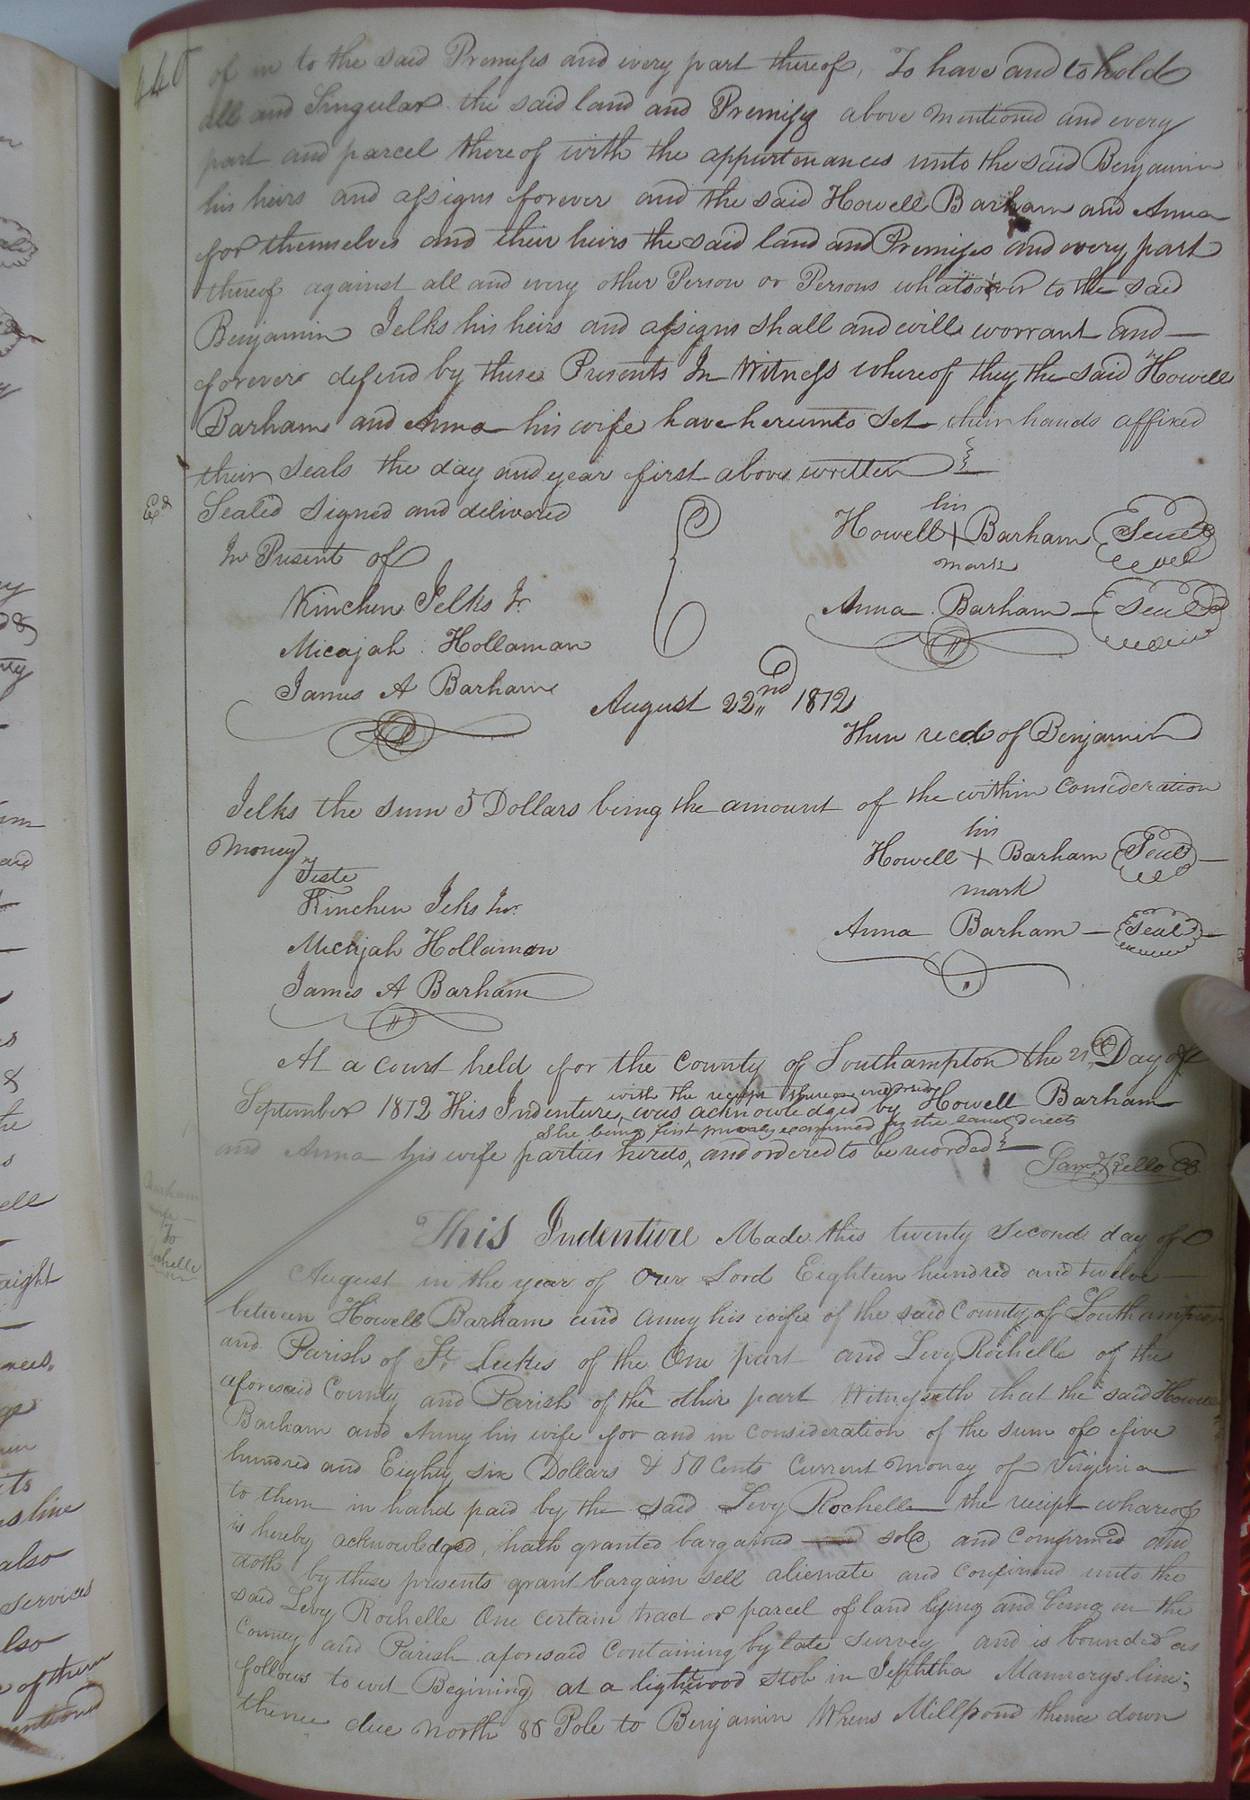 440
of in to the said Premises and every part thereof, To have and to hold
all and Singular the said land and Premises above mentioned and every
part and parcel thereof with the appurtenances unto the said Benjamin
his heirs and assigns forever and the said Howell Barham and Anna
for themselves and their heirs the said land and Premises and every part
thereof against all and every other Person or Persons whatsoever to the said
Benjamin Jelks his heirs and assigns shall and will worrant and
forever defend by these Presents In Witness whereof they the said Howell
Barham and Anna his wife have hereunto Set their hands affixed
their Seals the day and year first above written
Exd
Sealed Signed and delivered
In Present of
Kinchen Jelks Jr
Micajah Hollaman
James A Barham
his
Howell + Barham Seal
mark
Anna Barham Seal
August 22nd 1812
Then recd of Benjamin
Jelks the sum 5 Dollars being the amount of the within Consideration
Money
Teste
Kinchen Jelks Jur
Micajah Hollaman
James A Barham
his
Howell + Barham Seal
mark
Anna Barham Seal
At a court held for the County of Southampton the 21st Day of
September 1812 This Indenture with the receipt thereon indorsed was acknowledged by Howell Barham
She being first privily examined as the law directs
and Anna his wife parties hereto, and ordered to be recorded
Saml Kello CC
Barham
To
Rochelle
This Indenture Made this twenty Second day of
August in the year of Our Lord Eighteen hundred and twelve
between Howell Barham and Anny his wife of the said County of Southampton
and Parish of St. Lukes of the One part and Levy Rochelle of the
aforesaid County and Parish of the other part Witnesseth that the said Howell
Barham and Anny his wife for and in Consideration of the sum of five
hundred and Eighty six Dollars & 50 Cents Current money of Virginia
to them in hand paid by the said Levy Rochelle the receipt whareof
is hereby acknowledged, hath granted bargained and sold and Confirmed and
doth by these presents grant bargain sell alienate and Confirmed unto the
said Levy Rochelle One certain tract or parcel of land lying and being in the
County and Parish aforesaid Containing by late survey and is bounded as
follows to wit Begining at a lightwood stob in Jephtha Mannorys line;
thence due North 86 Pole to Benjamin Millpond thence down